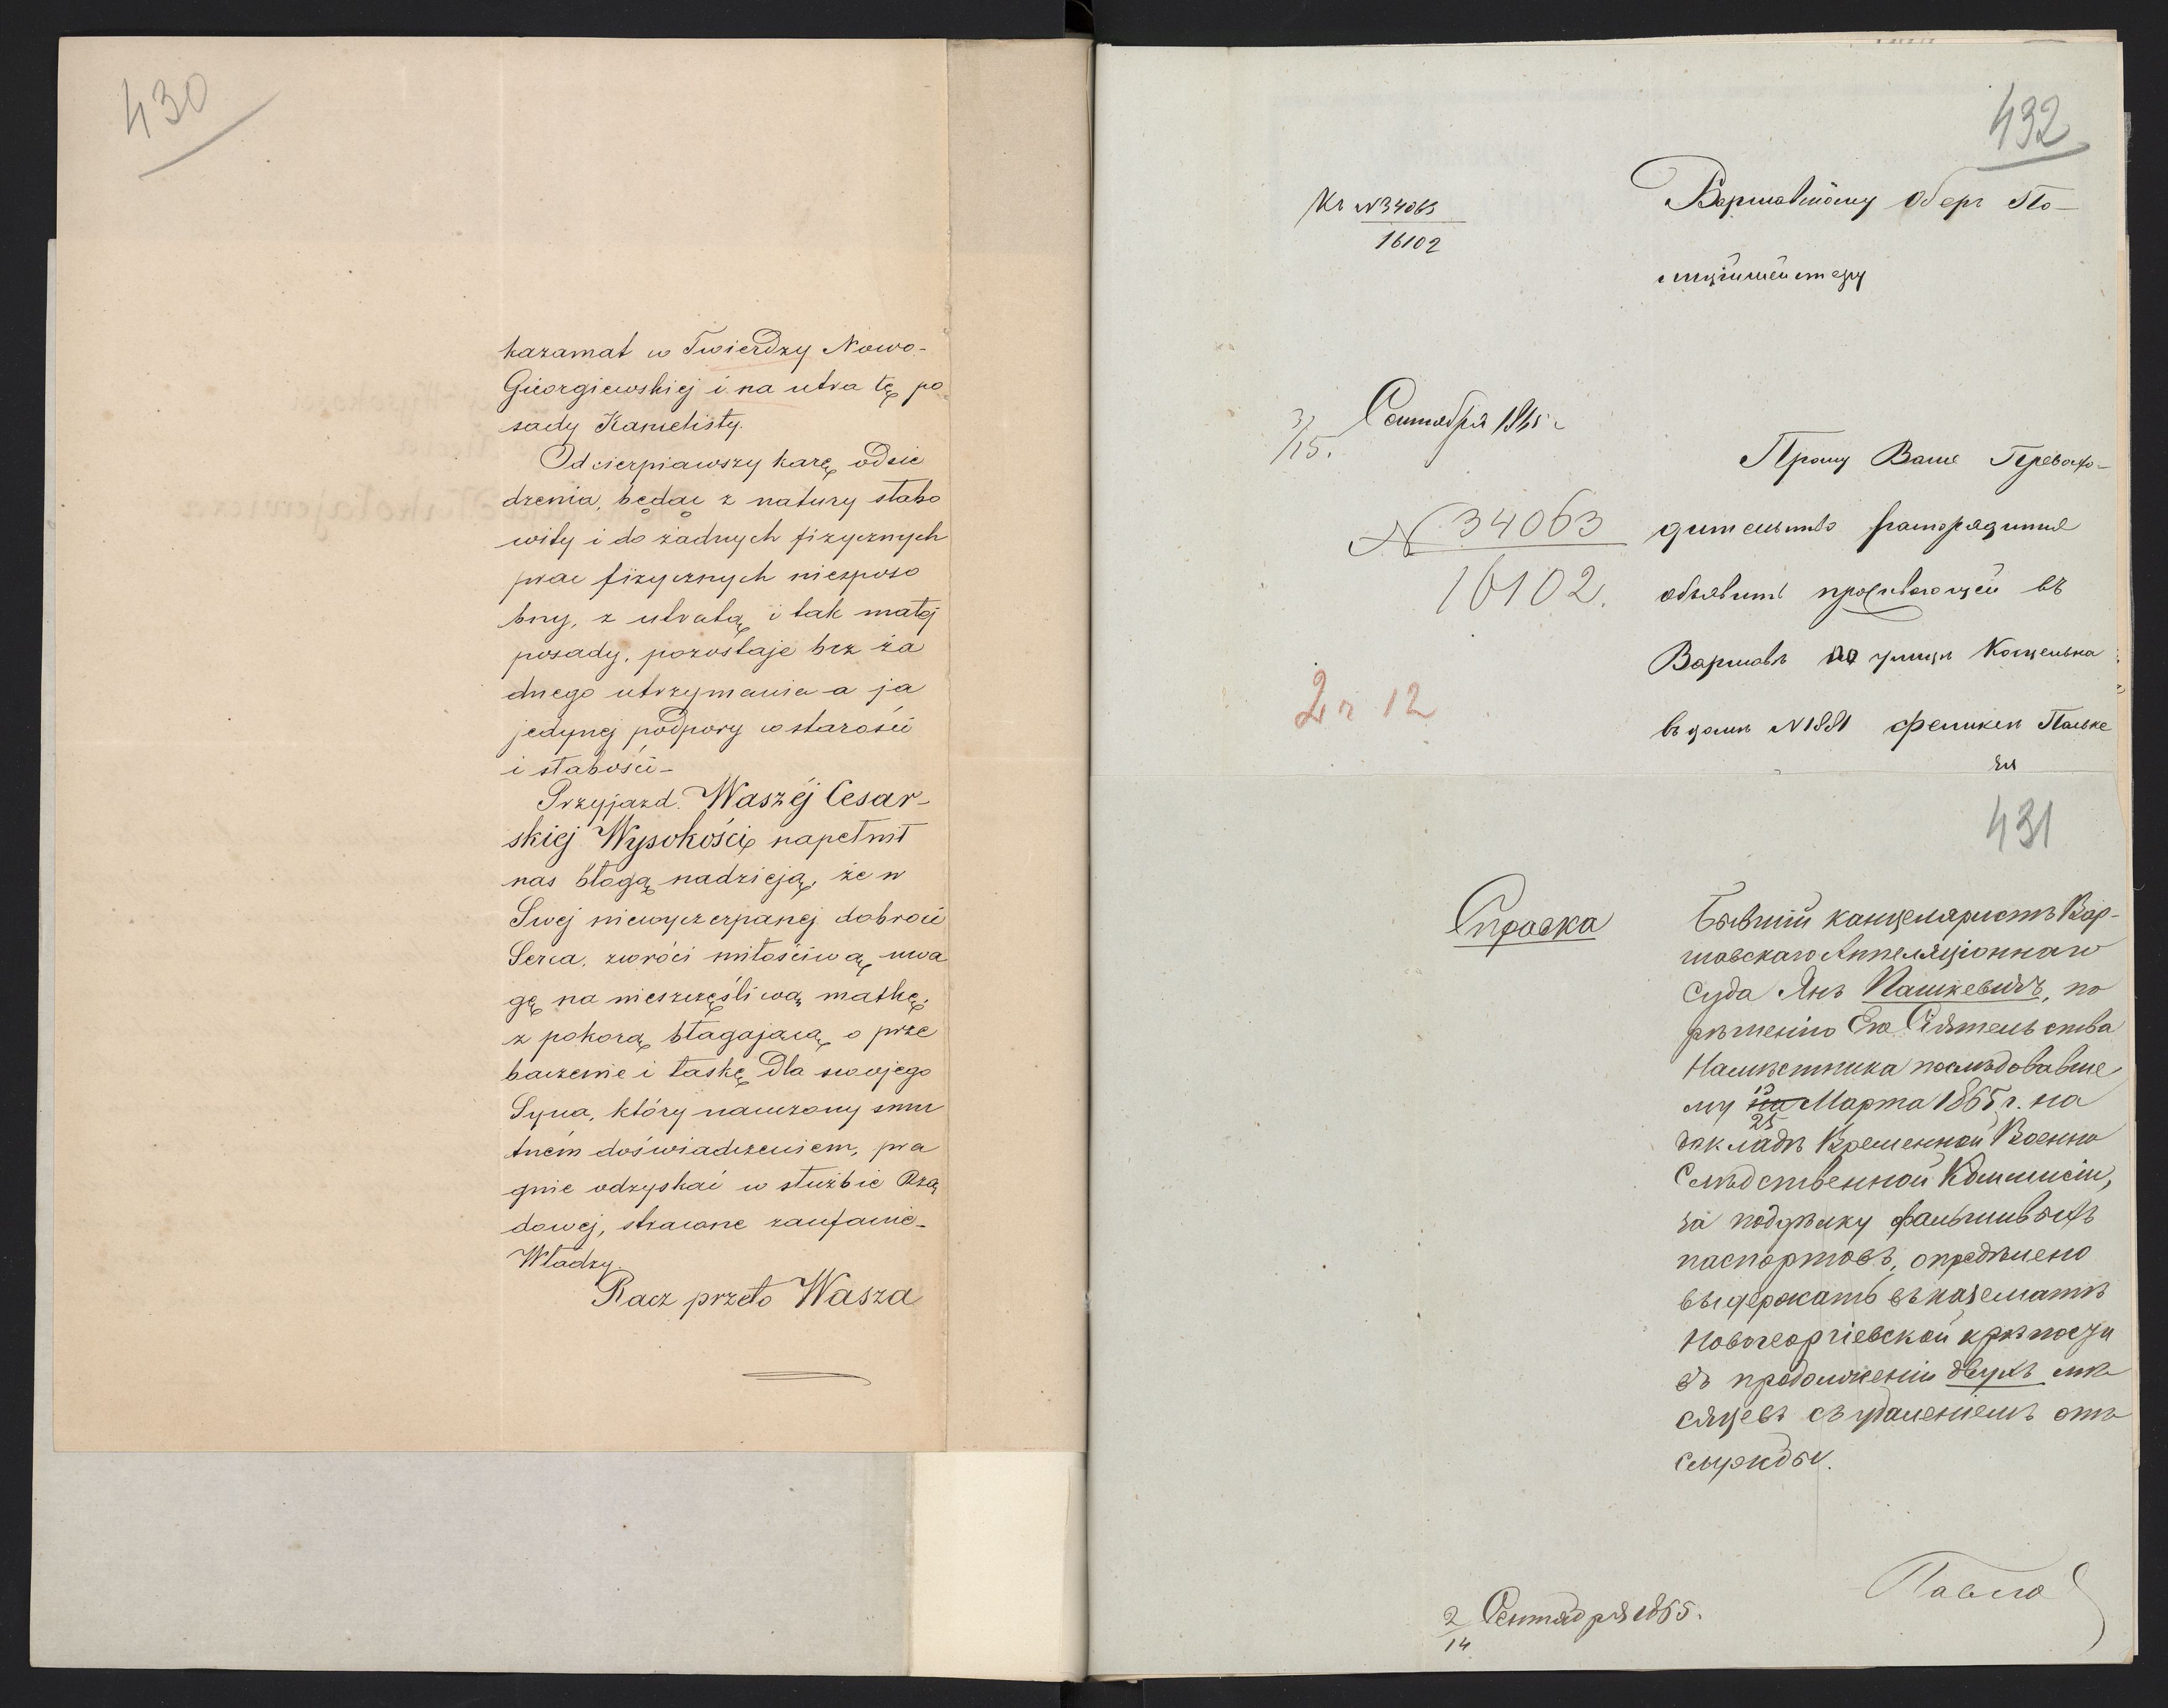 430
kazamat w Twierdzy Nowo-
Gieorgiewskiej i na utra tę po
sady Kancelisty.
Odcierpiawszy karę odsie
dzenia, będąc z natury słabo
wity i do żadnych fizycznych
prac fizycznych niezposo
bny, z utratą i tak małej
posady, pozostaje bez ża
dnego utrzymania a ja
jedynej podpory w starości
i słabości-
Przyjazd Waszéj Cesar-
skiej Wysokości napełnił
nas błogą nadzieją, że w
Swej niewyczerpanej dobroci
Serca, zwróci miłościwą uwa
gę na nieszczęśliwą matkę,
z pokorą błagającą o prze
baczenie i łaskę dla swojego
Syna, który nauczony smu
tném doświadczeniem, pra
gnie odzyskać w służbie Rzą
dowej, stracone zaufanie-
Władzy
Racz przeto Wasza
432
Къ N 34063
16102
Варшавскому Оберъ По-
лицiймейстеру
3/15. Сентября 1865 г.
Прошу Ваше Превосхо-
N 34063
16102.
дительство распоряд
объявить проживающей въ
Варшавѣ по улицѣ
2 г 12
въ домѣ N 1881
431
Справка
Бывшiй канцеляристъ Вар-
шавскаго Аппеляцiоннаго
Суда Янъ Пашкевичъ, по
рѣшенiю Его Сiятельства
Намѣстника послѣдовавше
му 13/25 Марта 1865 г. на
докладъ Временной Военно
Слѣдственной Коммисiи,
за поддѣлку фальшивыхъ
паспортовъ, опредѣлено
выдержать въ казематѣ
Новогеоргiевской крѣпости
въ продолженiи двухъ мѣ
сяцевъ съ удаленiемъ отъ
службы.
2/14 Сентября 1865.